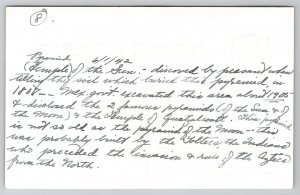 (8)
Pyramid 4/1/42
(Temple) of the Sun. - discovered by peasant when
tilling the soil which buried this pyramid in
18 -. Mex. govt. excavated this area about 1905
& disclosed the 2 famous pyramids (of the Sun & of
the Moon) & the temple of Quetzalcoatl. This pyramid
is not so old as the pyramid of the Moon - this
was probably built by the Toltecs, the Indians
who preceded the invasion & rule of the Aztecs
from the North.